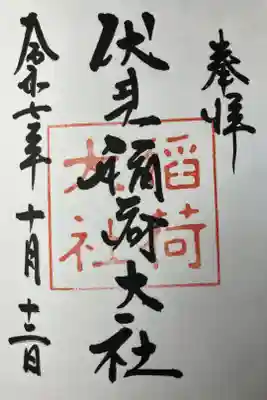 奉拝
伏見稲荷大社
稲荷
大社
令和七年 十月 十三日